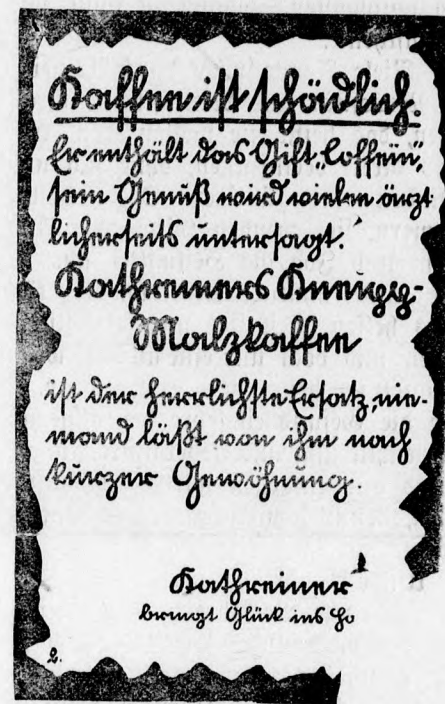 Kaffee ist schädlich.
Er enthält das Gift „Coffein“,
sein Genuß wird vielen ärzt-
licherseits untersagt.
Kathreiners Kneipp-
Malzkaffee
ist der herrlichste Ersatz, nie-
mand läßt von ihm nach
kurzer Gewöhnung.
Kathreiner
bringt Glück ins Ha
2.